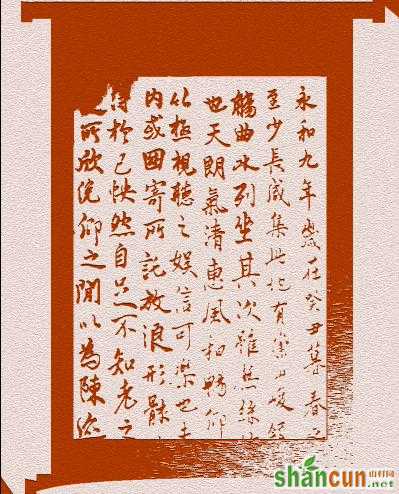 永和九年歲在癸丑暮春之
至少長咸集此地有崇山峻領
觴曲水列坐其次雖無絲
也天朗氣清惠風和暢仰
以極視聽之娛信可樂也夫
內或因寄所託放浪形骸
得於己怏然自足不知老之
所欣俛仰之閒以為陳迹
shancun 山村网
.net